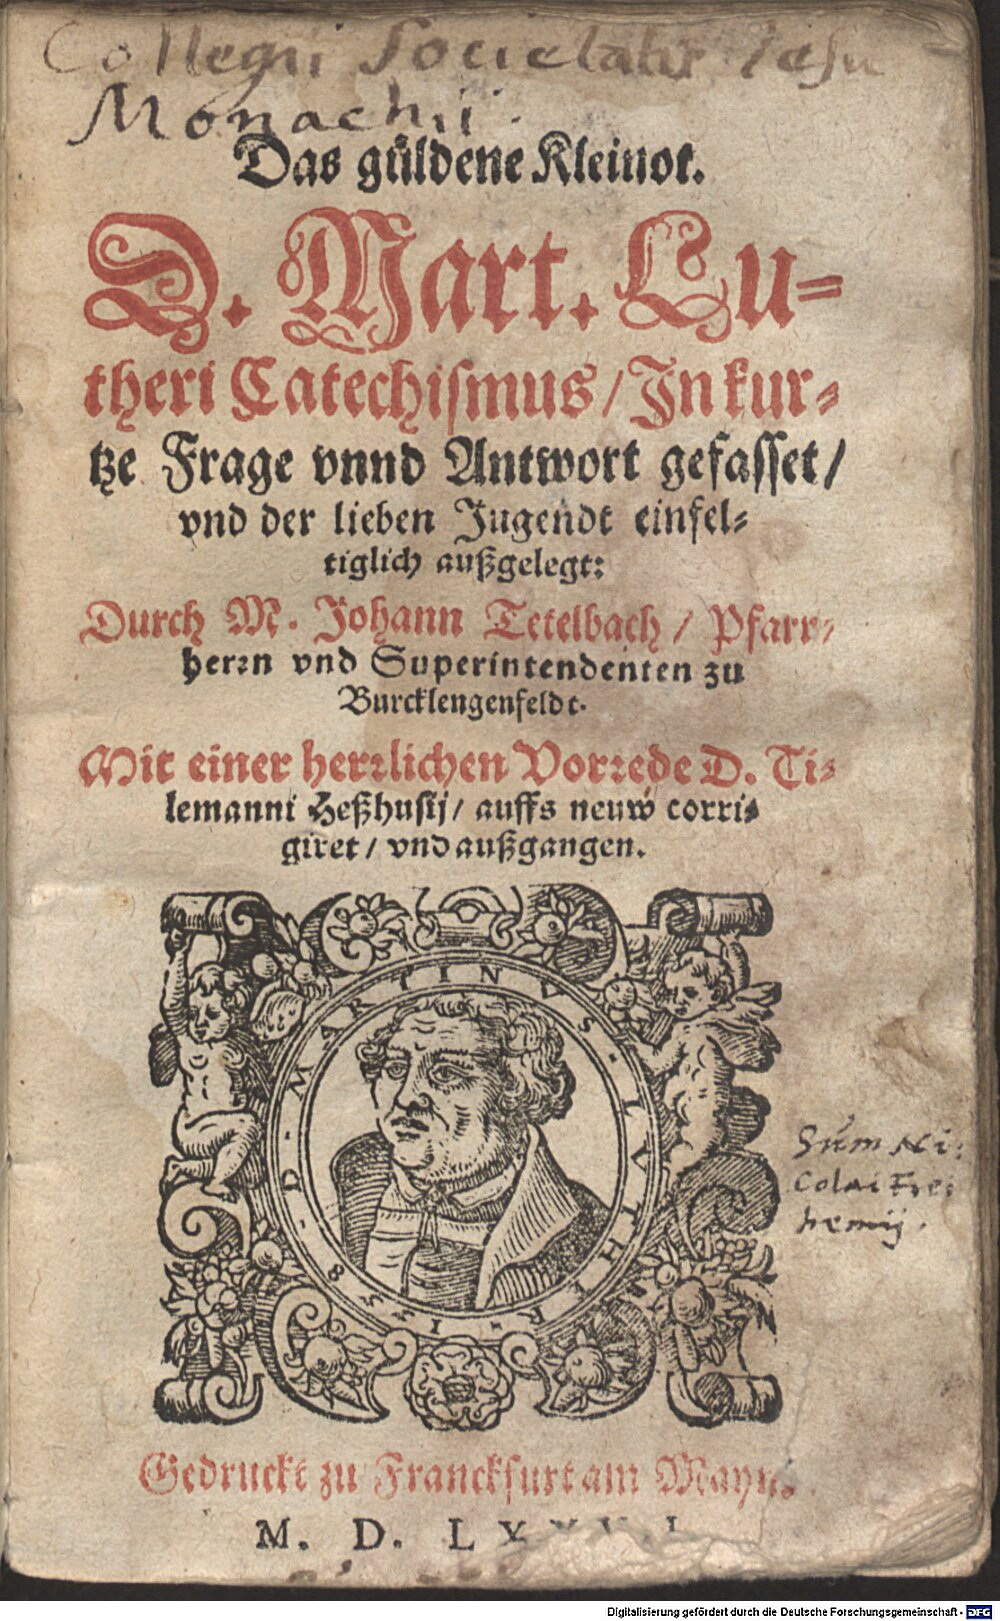 Collegii Societatis Iesu
Monachii.
Das güldene Kleinot.
D. Mart. Lu-
theri Catechismus/ In kur-
tze Frage vnnd Antwort gefasset/
vnd der lieben Jugendt einfel-
tiglich außgelegt:
Durch M. Johann Tetelbach/ Pfarr-
herrn vnd Superintendenten zu
Burcklengenfeldt.
Mit einer herrlichen Vorrede D. Ti-
lemanni Heßhusij/ auffs neuw corri-
giret/ vnd außgangen.
D. MARTINVS. LVTHER. 1558
Sum Ni-
colai
Gedruckt zu Franckfurt am Mayn.
M. D. L
Digitalisierung gefördert durch die Deutsche Forschungsgemeinschaft - DFG